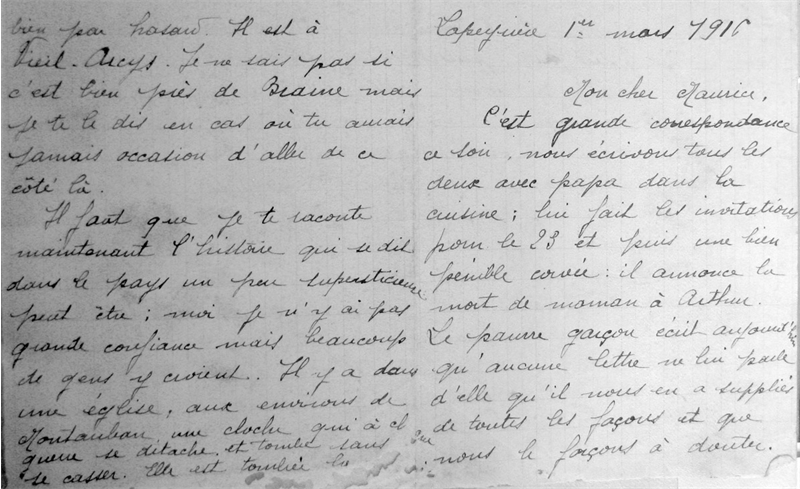 Lapeyrière 1er mars 1916
Mon cher Maurice,
C'est grande correspondance
ce soir, nous écrivons tous les
deux avec papa dans la
cuisine ; lui fait les invitations
pour le 23 et puis une bien
pénible corvée : il annonce la
mort de maman à Arthur.
Le pauvre garçon écrit aujourd'hui
qu'aucune lettre ne lui parle
d'elle qu'il nous en a suppliés
de toutes les façons et que
nous le forçons à douter.
bien par hasard. Il est à
Vieil-Arcys. Je ne sais pas si
c'est bien près de Braine mais
je te le dis en cas où tu aurais
jamais occasion d'aller de ce
côté là.
Il faut que je te raconte
maintenant l'histoire qui se dit
dans le pays un peu superstitieuse
peut être ; moi je n'y ai pas
grande confiance mais beaucoup
de gens y croient. Il y a dans
une église, aux environs de
Montauban une cloche qui à chaque
guerre se détache et tombe sans
se casser. Elle est tombée